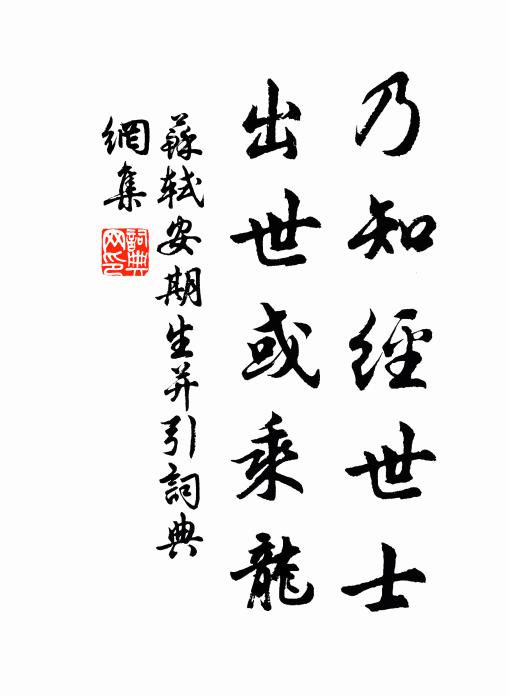 乃知經世士
出世或乘龍
蘇軾安期生并引詞典
網集
詞典網印